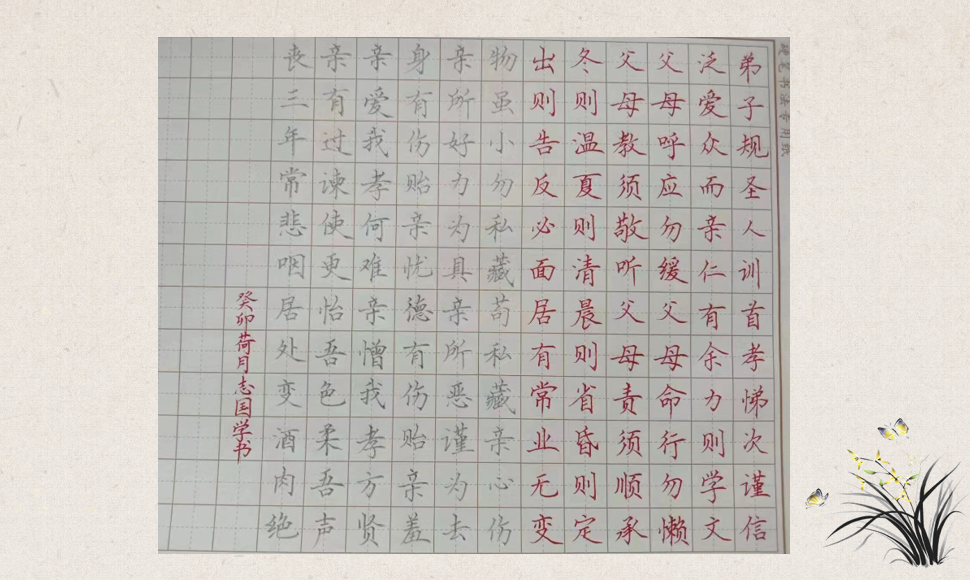 弟子规圣人训首孝悌次谨信
泛爱众而亲仁有余力则学文
父母呼应勿缓父母命行勿懒
父母教须敬听父母责须顺承
冬则温夏则清晨则省昏则定
出则告反必面居有常业无变
物虽小勿私藏苟私藏亲心伤
亲所好力为具亲所恶谨为去
身有伤贻亲忧德有伤贻亲羞
亲爱我孝何难亲憎我孝方贤
亲有过谏使更怡吾色柔吾声
丧三年常悲咽居处变酒肉绝
癸卯荷月志国学书